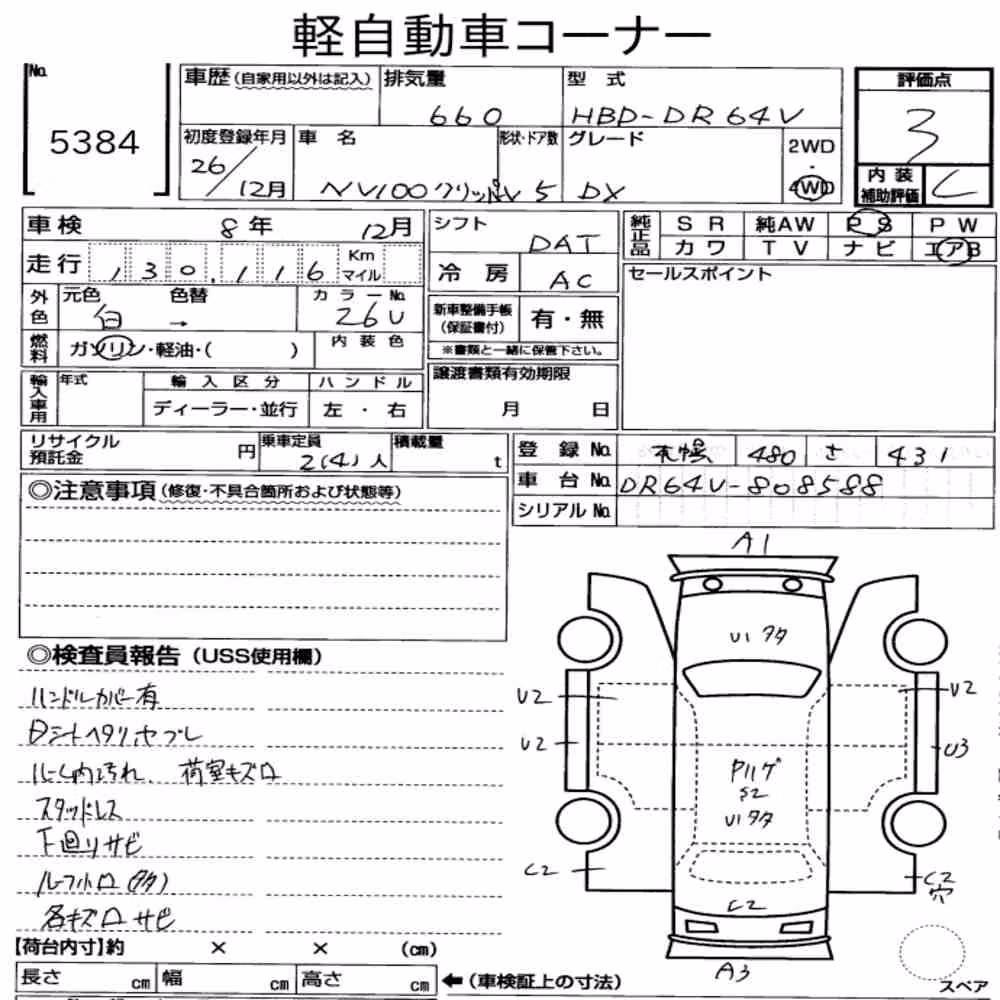 軽自動車コーナー
No. 5384
車歴 (自家用以外は記入) 排気量 660 型式 HBD-DR64V
評価点 3
初度登録年月 26/12月 車名 NV100クリッパV 形状・ドア数 5 グレード DX 2WD・4WD
内装補助評価 C
車検 8年 12月
シフト DAT
純正品 SR 純AW PS PW
カワ TV ナビ エアB
走行 130,116 Km マイル
冷房 AC
セールスポイント
外色 元色 白 → 色替 カラーNo. 26U
新車整備手帳(保証書付) 有・無
燃料 ガソリン・軽油・( ) 内装色
※書類と一緒に保管下さい。
輸入車用 年式 輸入区分 ハンドル
ディーラー・並行 左・右
譲渡書類有効期限
月 日
リサイクル預託金 円 乗車定員 2(4)人 積載量 t
登録No. 札幌 480 さ 431
車台No. DR64V-808588
シリアルNo.
◎注意事項(修復・不具合箇所および状態等)
◎検査員報告(USS使用欄)
ハンドルカバー有
Dシートヘタリ、ヤブレ
ルーム内汚れ、荷室キズロ
スタッドレス
下廻りサビ
ルーフ小ロ(タタ)
各キズロ サビ
A1
U1 タタ
U2 U2
U2 U3
Pハゲ
S2
U1 タタ
C2 C2
穴
C2
A3
スペア
【荷台内寸】約 × × (cm)
長さ cm 幅 cm 高さ cm ←(車検証上の寸法)